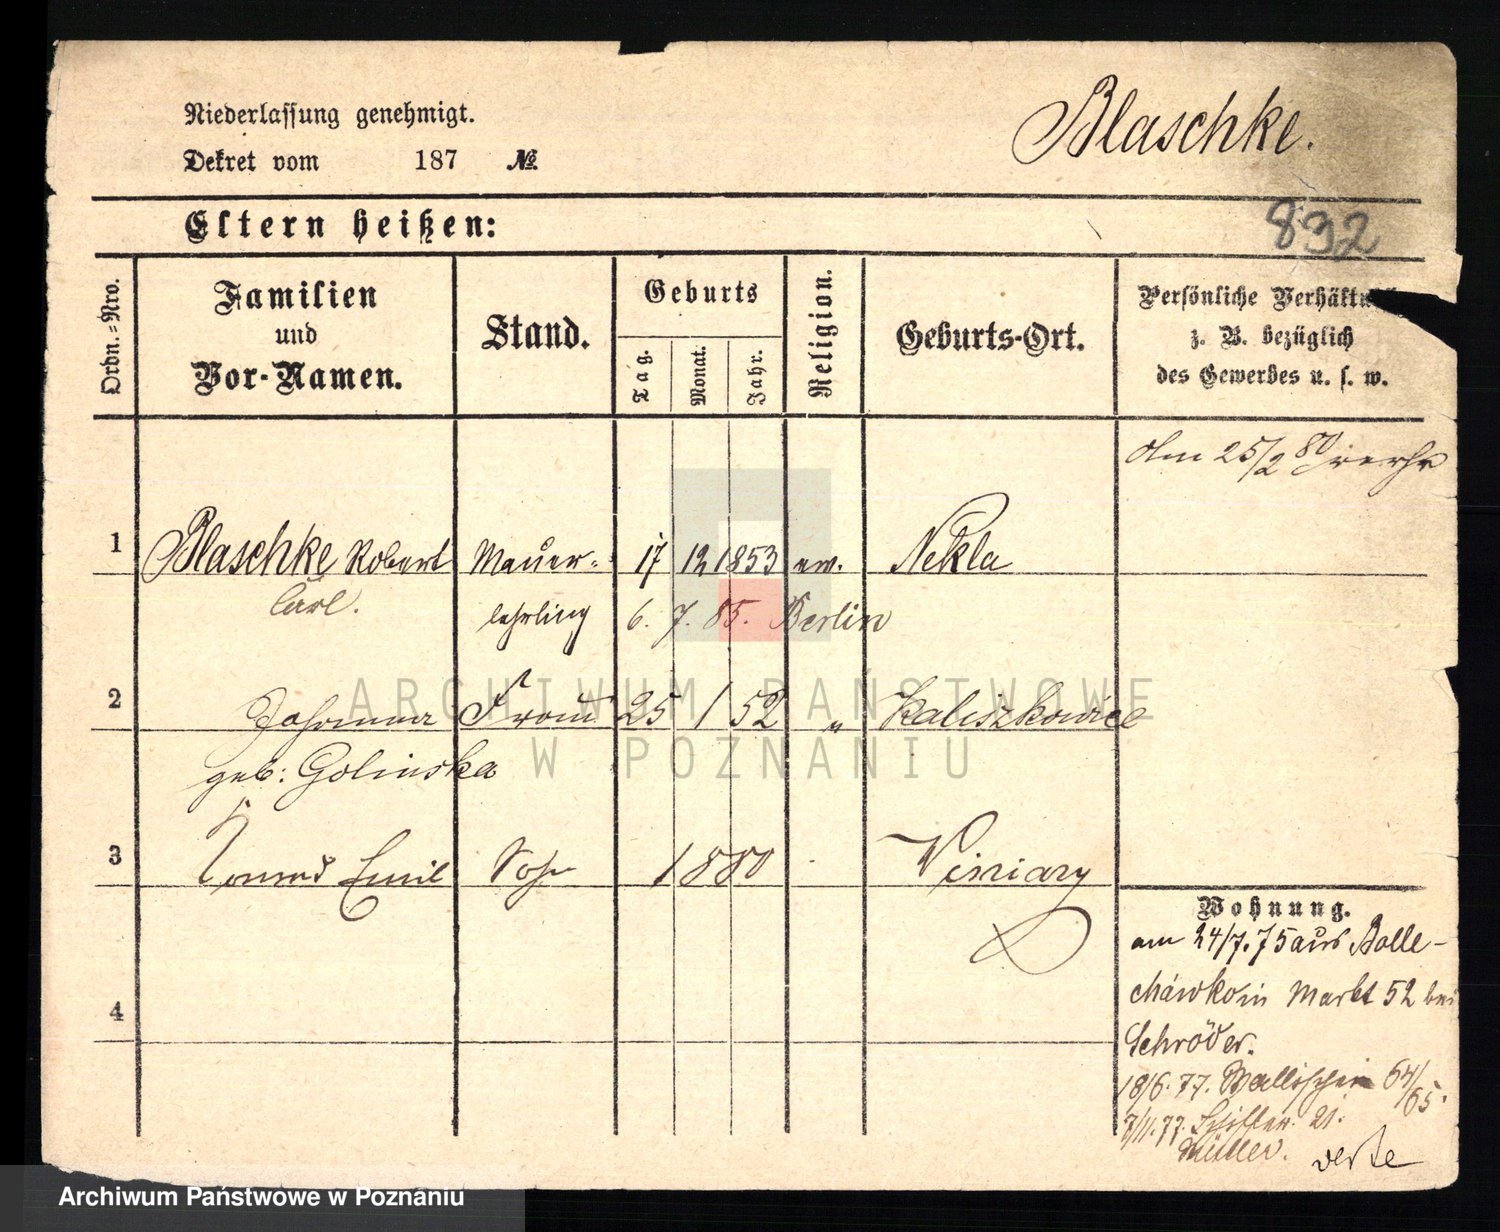 Niederlassung genehmigt.
Dekret vom 187 №
Blaschke.
Eltern heißen:
832
Ordn.-Nro.
Familien
und
Vor-Namen.
Stand.
Geburts
Tag.
Monat.
Jahr.
Religion.
Geburts-Ort.
Persönliche
z. B. bezüglich
des Gewerbes u. s. w.
25/2 80
1 Blaschke Robert Mauer- 17 12 1853 ev. Nekla
Carl. lehrling 6. 7. 85. Berlin
2 Johanna Frau 25 1 52 " Kaliszkowice
geb: Golinska
3 Emil Sohn 1880 Winiary
Wohnung.
am 24/7. 75 aus Bolle-
chawko in Markt 52 bei
Schröder.
18/6. 77. Wallischei 64/65.
7/11. 77. 21.
Müller. verte
4
ARCHIWUM PAŃSTWOWE
W POZNANIU
Archiwum Państwowe w Poznaniu